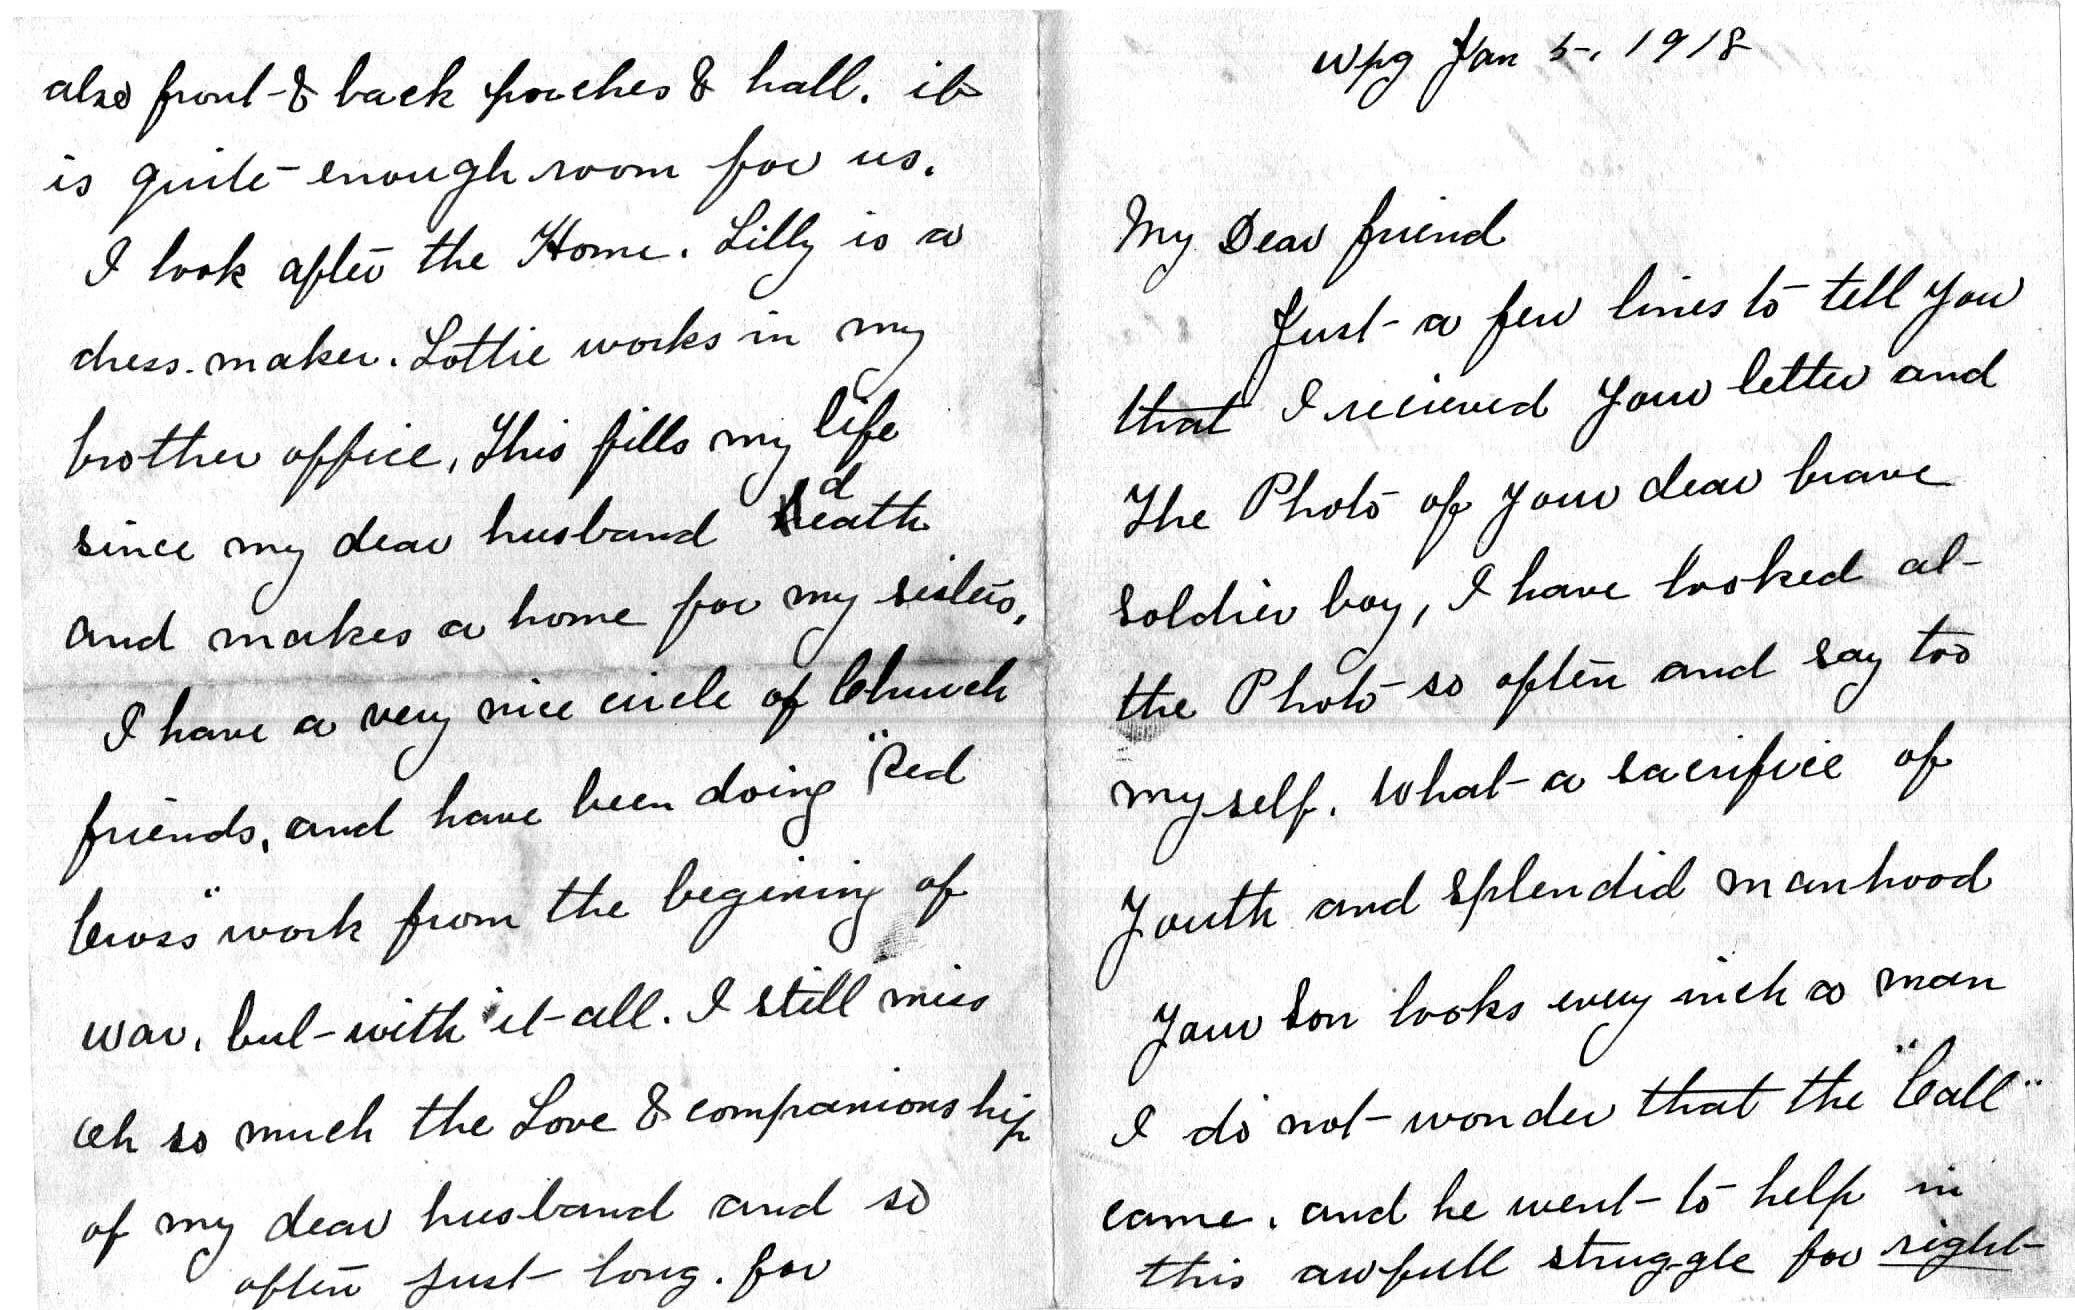 Wpg Jan 5, 1918
My Dear friend
Just a few lines to tell you
that I recieved your letter and
The Photo of your dear brave
soldier boy, I have looked at
the Photo so often and say too
my self. What a sacrifice of
Youth and splendid manhood
Your Son looks every inch a man
I do not wonder that the "Call"
came. and he went to help in
this awfull struggle for right
also front & back porches & hall. it
is quite enough room for us.
I look after the Home. Lilly is a
dress-maker. Lottie works in my
brother office, This fills my life
since my dear husband death
and makes a home for my sisters.
I have a very nice circle of Church
friends, and have been doing "Red
Cross" work from the begining of
war, but with it all. I still miss
Oh so much the Love & companionship
of my dear husband and so
often just long. for